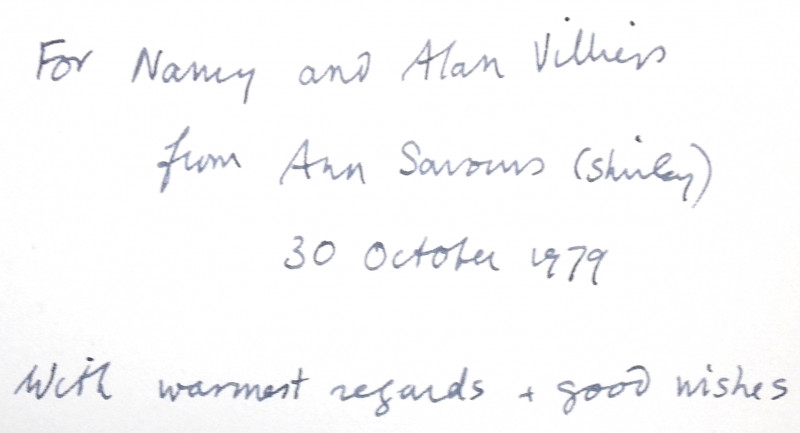 For Nancy and Alan Villiers
from Ann Savours (Shirley)
30 October 1979
With warmest regards + good wishes